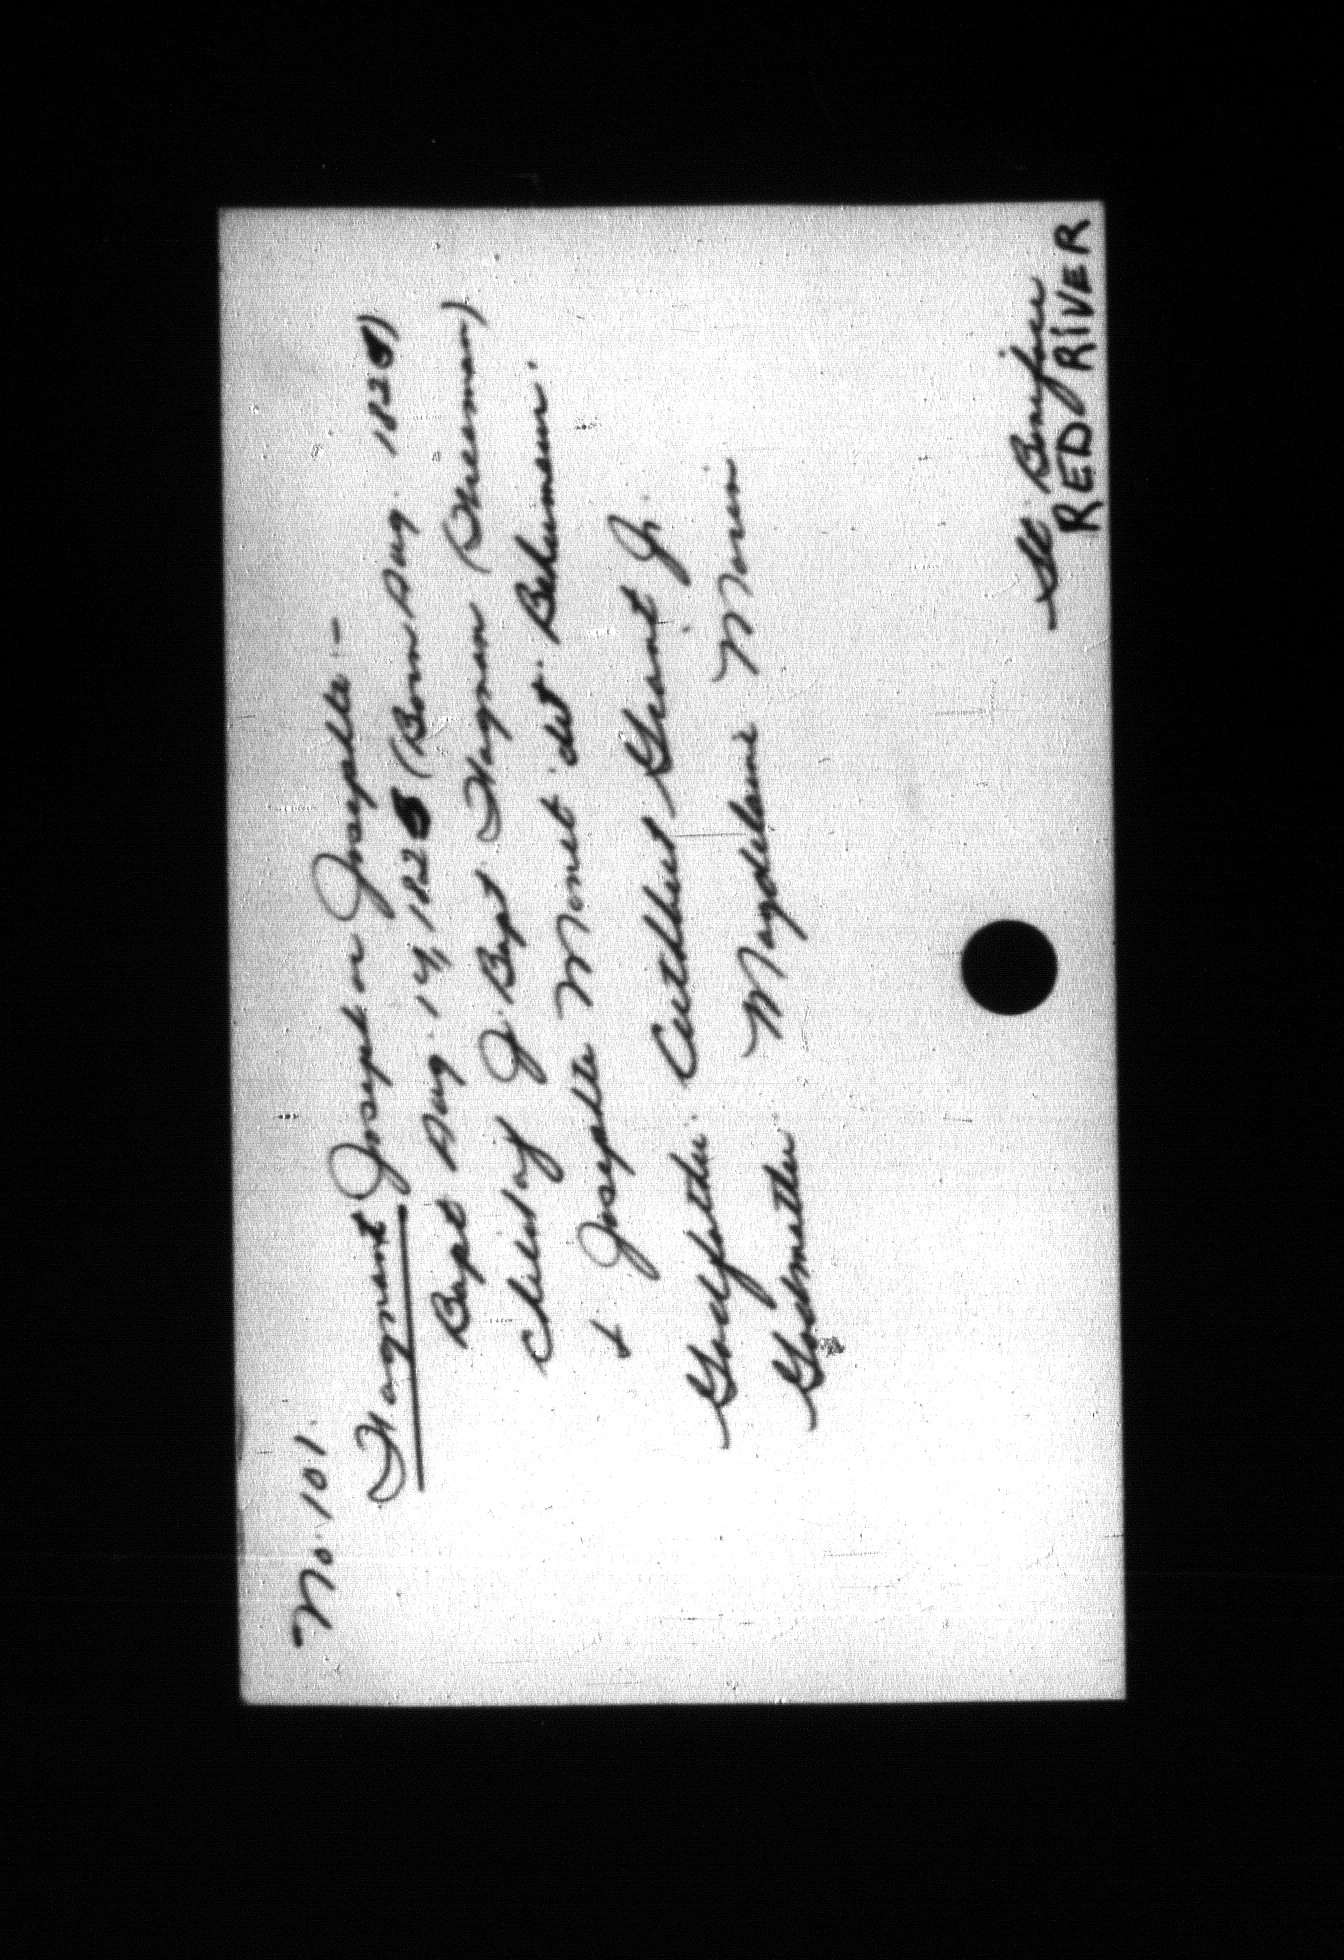 No. 101.
Hagnant Joseph or Josephte –
Bapt Aug. 14, 1825 (Born Aug. 1825)
Child of J. Bapt Hagnan (Freeman)
& Josephte Monet dit. Belumeur.
Godfather. Cuthbert Grant Jr.
Godmother Magdelaine Morin
St. Boniface
RED RIVER